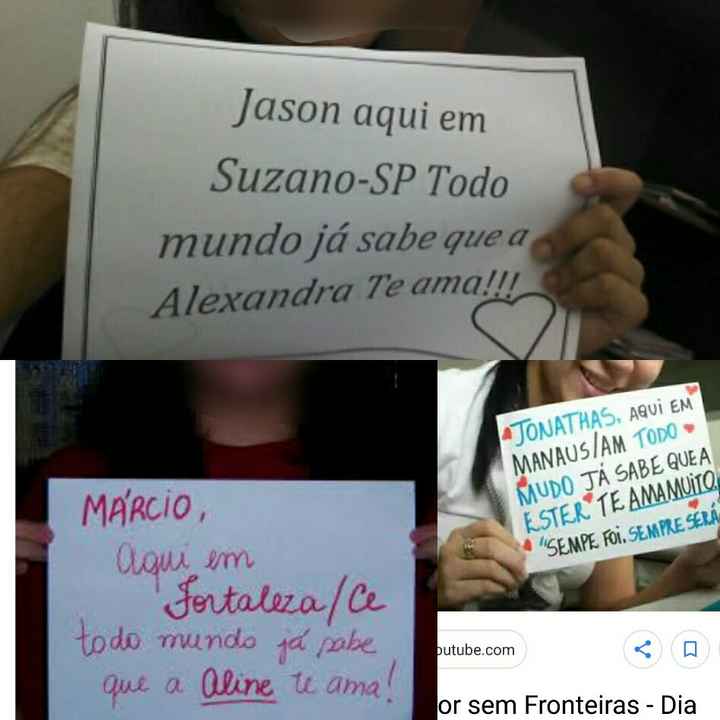 Jason aqui em
Suzano-SP Todo
mundo já sabe que a
Alexandra Te ama!!!
MÁRCIO,
aqui em
Fortaleza/Ce
todo mundo já sabe
que a Aline te ama!
JONATHAS, AQUI EM
MANAUS/AM TODO
MUDO JÁ SABE QUE A
ESTER TE AMA MUITO
"SEMPE FOI. SEMPRE SERÁ
outube.com
or sem Fronteiras - Dia